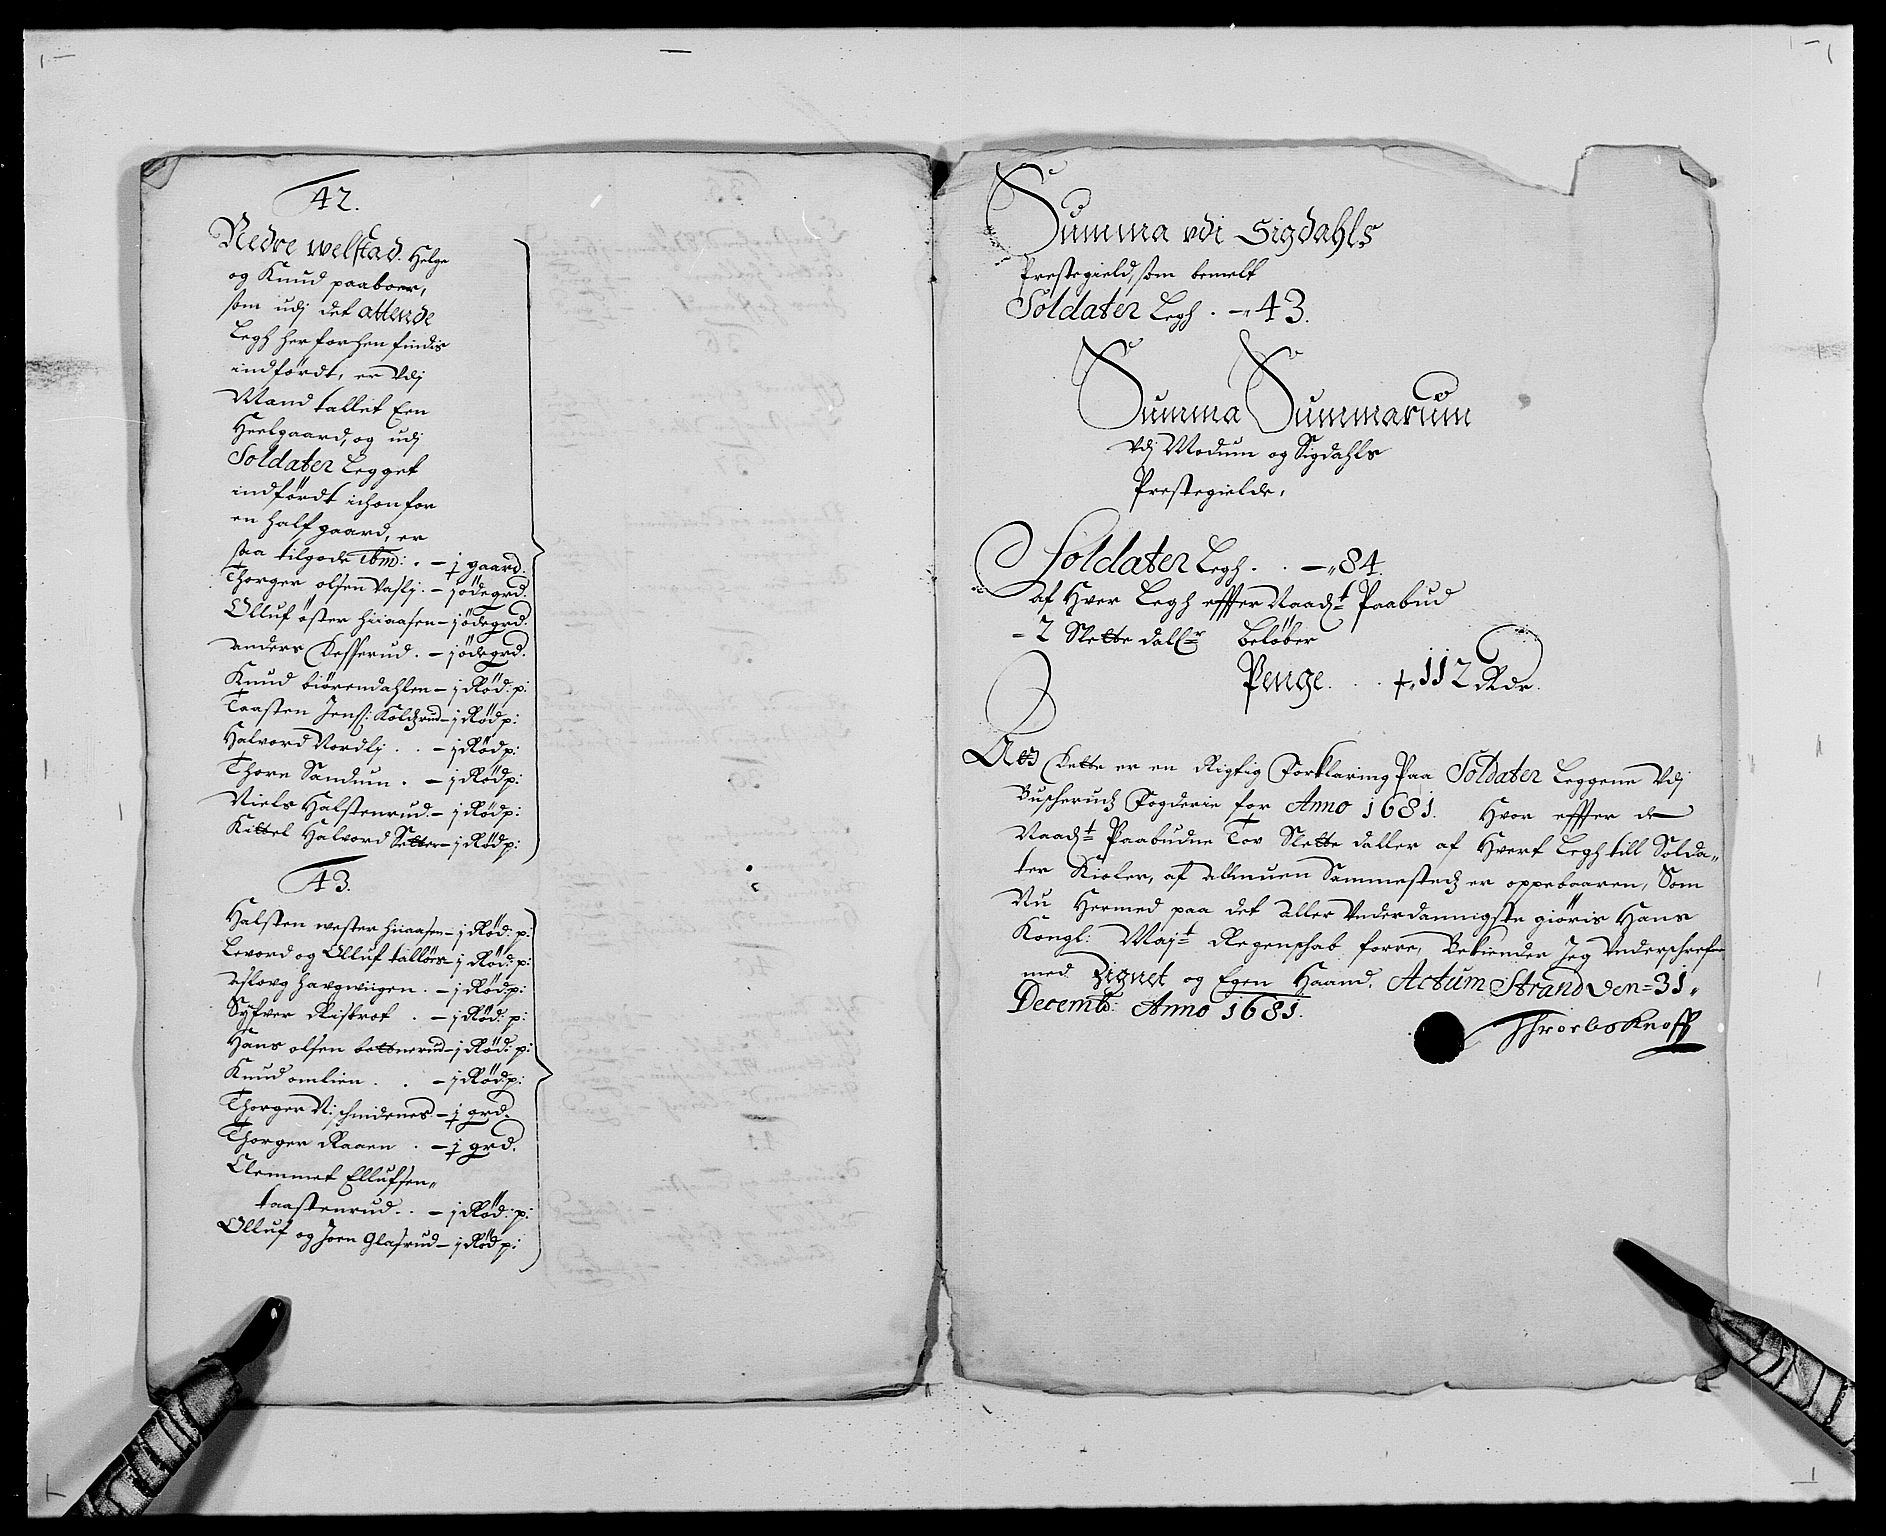 42.
Nedre welstad. Helge
og Knud paaboer,
som udj det attende
Legh her forhen findis
indfördt, er Vdj
Mand tallet Een
Heelgaard, og udj
Soldater Legget
indfördt ichon for
en half gaard, er
saa tilgode ibm: . – ɉ gaard.
Thorger olsen Vaslj. – j ödegrd.
Olluf öster hiiaasen – j ödegrd.
anders Kefserud. – j ödegrd.
Knud biörendahlen – j Röd: p:
Taasten Jens: Kolchrud – j Röd p:
Halvord Nordlj . . – j Röd p:
Thore Sandum . – j Röd p:
Niels Halstenrud. – j Röd p:
Kittel Halvord Setter – j Röd p:
43.
Halsten wester hiiaasen – j Röd: p:
Levord og Olluf talleers – j Röd: p:
aslovg havgwiigen. – j Röd: p:
Syfver Riskrot . – j Röd: p:
Hans olsen bettnerud – j Röd: p:
Knud omlien . . – j Röd: p:
Thorger N: smidenes – ɉ grd.
Thorger Raaen . – ɉ grd.
Clemmet Ellufsen„
taastenrud . . – j Röd: p:
Olluf og Joen Glasrud – j Röd p:
Summa vdi Sigdahls
Prestegield, som bemelt
Soldater Legh . –„ 43.
Summa Summarum
Vdj Modum og Sigdahls
Prestegielde,
Soldater Legh . . –„ 84.
af Hver Legh effter Naadt Paabud
– 2 Slette dallr beløber
Penge . . . „ 112 Rdr.
At Dette er en Rigtig Forklaring Paa Soldater Leggene Vdj
Buscheruds Fogderie for Anno 1681. Hvor effter de
Naadt Paabudne Tov Slette daller af Hvert Legh till Solda„
ter Kioler, af allmuen Sammesteds er oppebaaren, Som
Nu Hermed paa det aller Vnderdannigste giöris Hans
Kongl: Mayt Regenschab forre, Bekiender Jeg Vnderschrefne
med Zignet og Egen Haand. Actum Strand Den = 31„
Decemb: Anno 1681.
Knoff